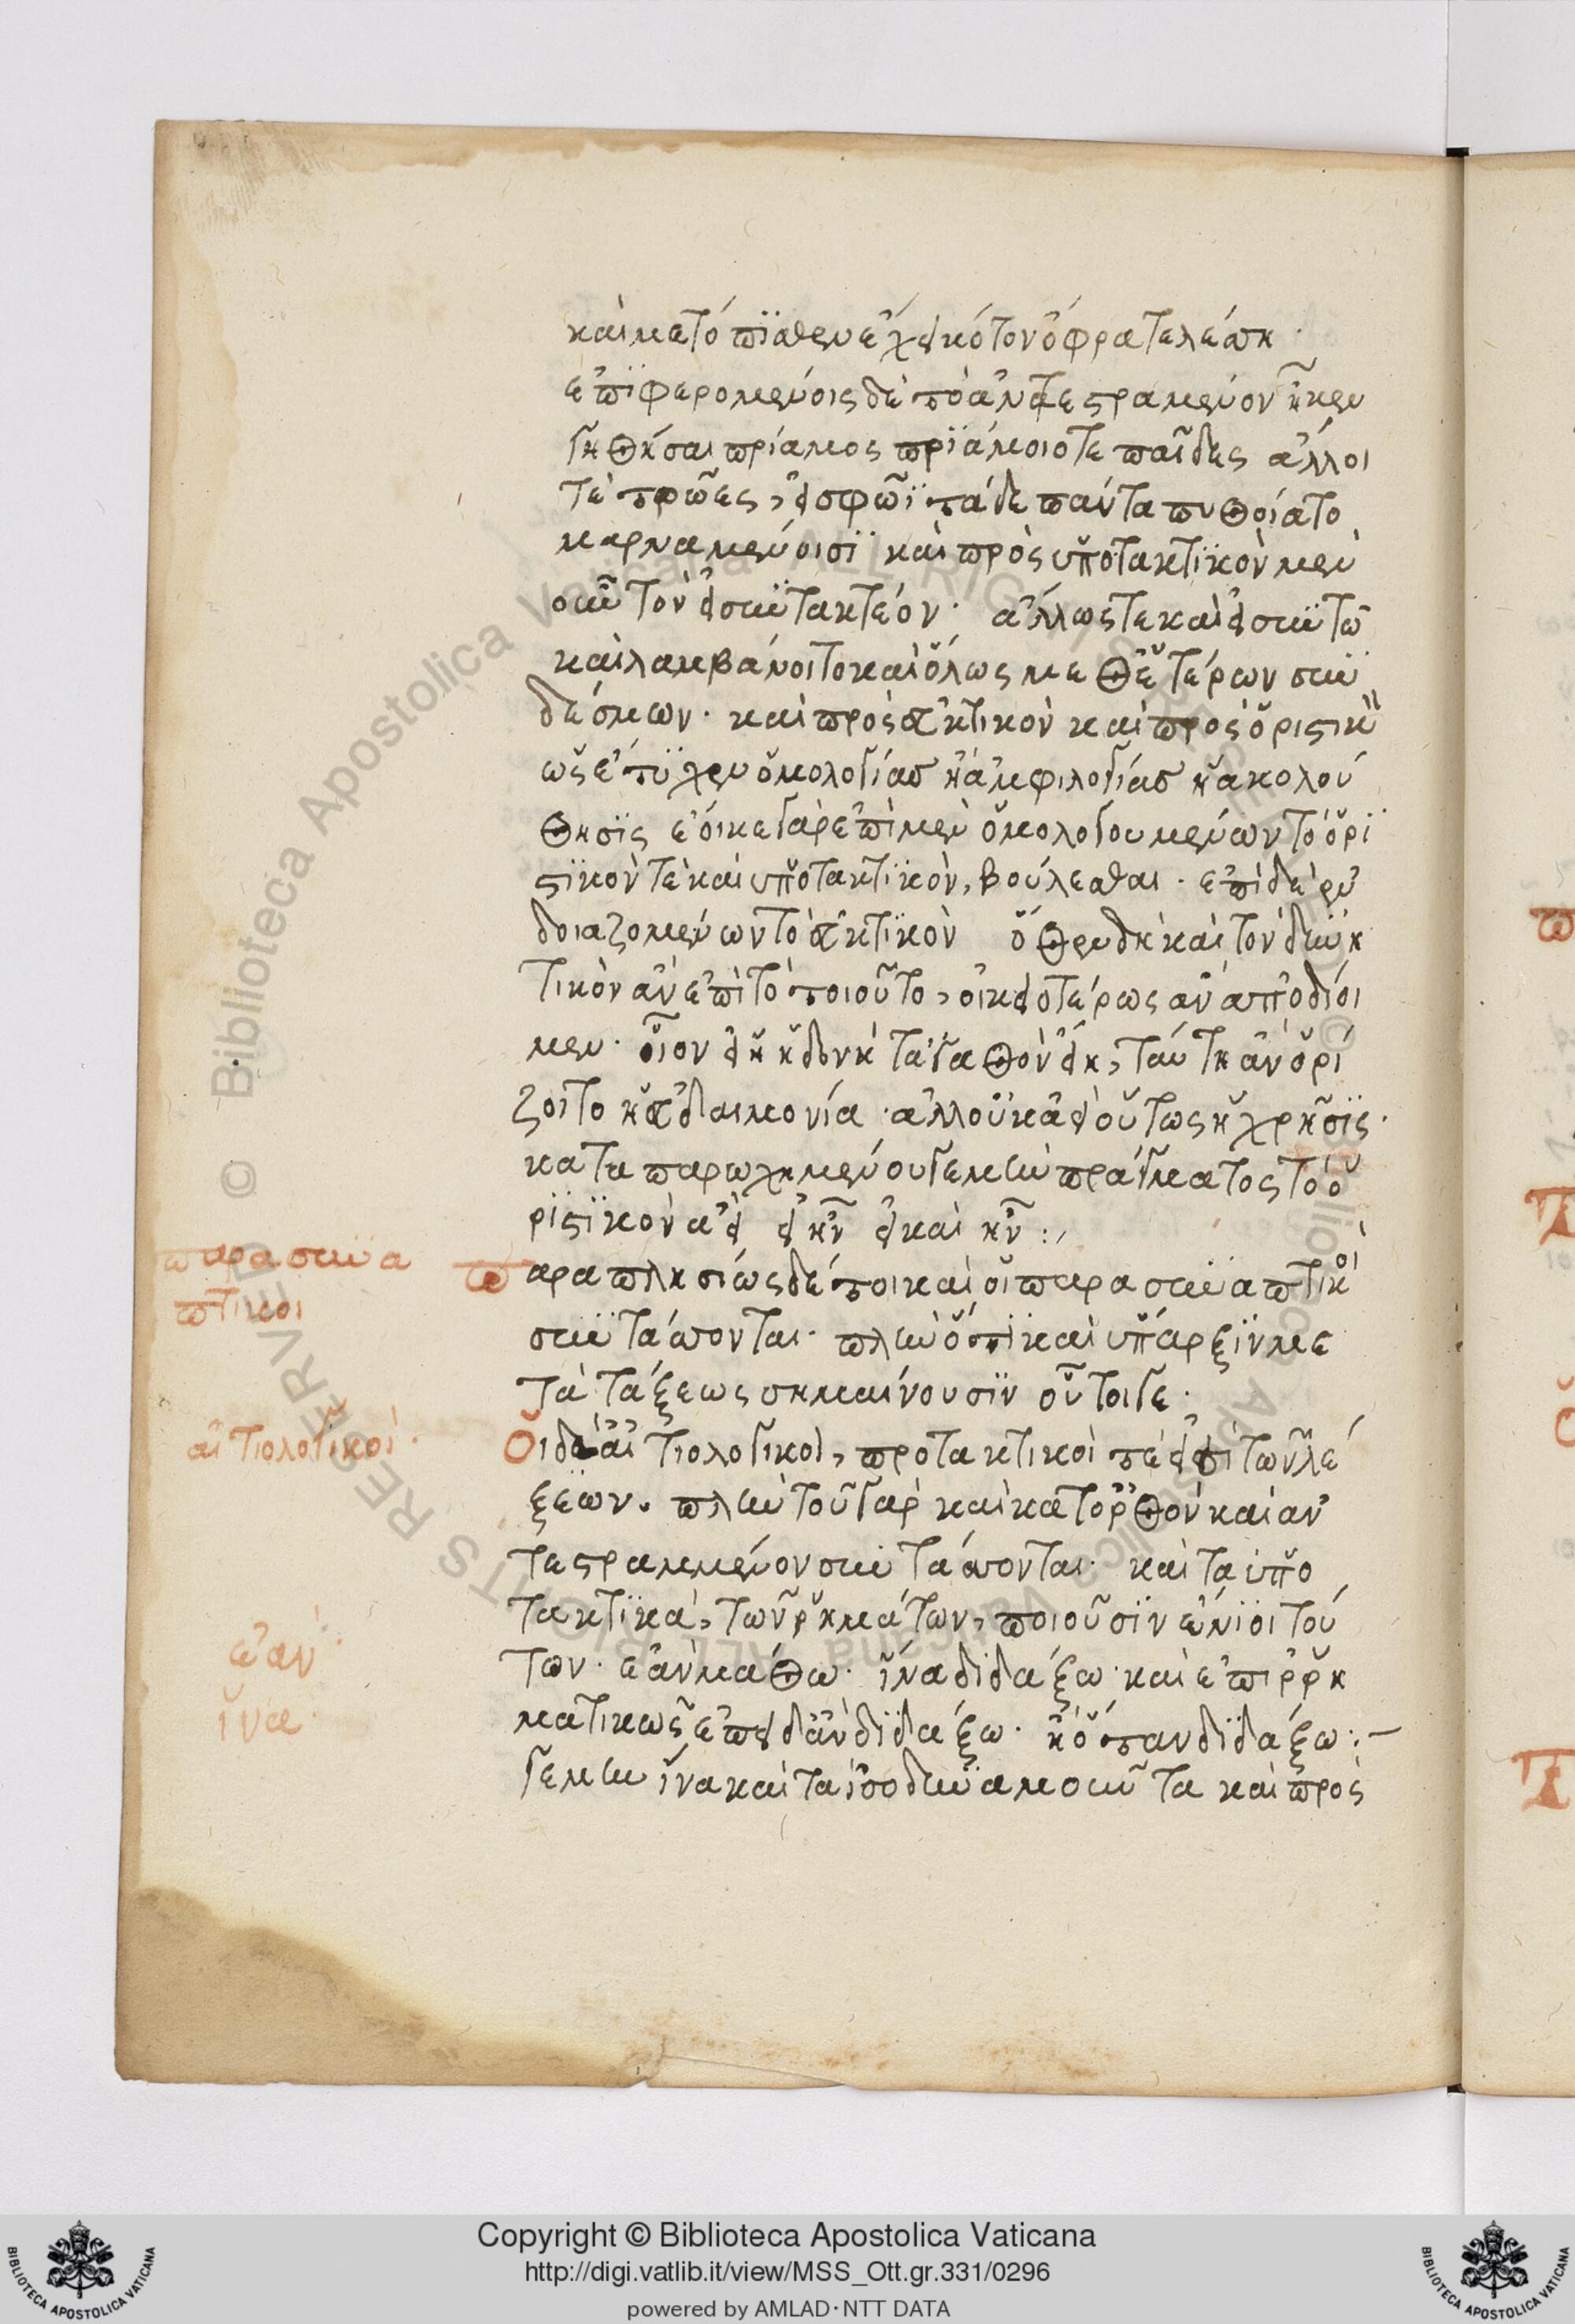 καὶ μετόπισθεν ἔχει κότον ὄφρα τελέσση·
ἐπιφερομένοις δὲ τὸ ἀντεστραμμένον ἦ κεν
γηθήσαι πρίαμος πριάμοιό τε παῖδες ἄλλοι
τὲ τρῶες, εἰ σφῶϊ τάδε πάντα πυθοίατο
μαρναμένοισι καὶ πρὸς ὑποτακτικὸν μὲν
οὖν τὸν εἰ συντακτέον· ἄλλως τε καὶ εἰ σὺν τῶ
καὶ λαμβάνοιτο καὶ ὅλως μεθ' ἑτέρων συν
δέσμων· καὶ πρὸς εὐκτικὸν καὶ πρὸς ὁριστικὸν
ὡς ἔτυχεν ὁμολογίας ἢ ἀμφιλογίας ἢ ἀκολού
θησις ἔοικε γὰρ ἐπὶ μὲν ὁμολογουμένων τὸ ὁρι
στικὸν τὲ καὶ ὑποτακτικὸν, βούλεσθαι· ἐπὶ δὲ ἐν
δοιαζομένων τὸ εὐκτικὸν ὅθεν δὴ καὶ τὸν δυνη
τικὸν ἂν ἐπὶ τὸ τοιοῦτο, οἰκειοτέρως ἂν ἀποδίοι
μεν· οἷον εἰ ἡ ἡδονὴ τἀγαθὸν εἴη, ταύτη ἂν ὁρί
ζοιτο ἡ εὐδαιμονία· ἀλλ' οὐκ ἀεὶ οὕτως ἡ χρῆσις·
κατὰ παρωχημένου γε μὴν πράγματος τὸ ὁ
ριστικὸν ἀεὶ εἰ ἦν εἰ καὶ ἦν :,
παραπλησίως δέ τοι καὶ οἱ παρασυναπτικοὶ
συντάσσονται· πλὴν ὅτι καὶ ὕπαρξιν με
τὰ τάξεως σημαίνουσιν οὗτοι γε·
Οἱ δὲ αἰτιολογικοὶ, προτακτικοὶ τέ εἰσι τῶν λέ
ξεων. πλὴν τοῦ γὰρ καὶ κατορθὸν καὶ ἀν
τεστραμμένον συντάσσονται· καὶ τὰ ὑπο
τακτικὰ, τῶν ῥημάτων, ποιοῦσιν ἔνιοι τού
των· ἐὰν μάθω· ἵνα διδάξω· καὶ ἐπιρρη
ματικῶς ἐπειδ' ἂν διδάξω· ἢ ὅταν διδάξω :-
γε μὴν ἵνα καὶ τὰ ἰσοδυναμοῦντα καὶ πρὸς
παρασυνα
πτικοι
αἰτιολογικοὶ·
ἐὰν·
ἵνα·
Copyright © Biblioteca Apostolica Vaticana
http://digi.vatlib.it/view/MSS_Ott.gr.331/0296
powered by AMLAD·NTT DATA